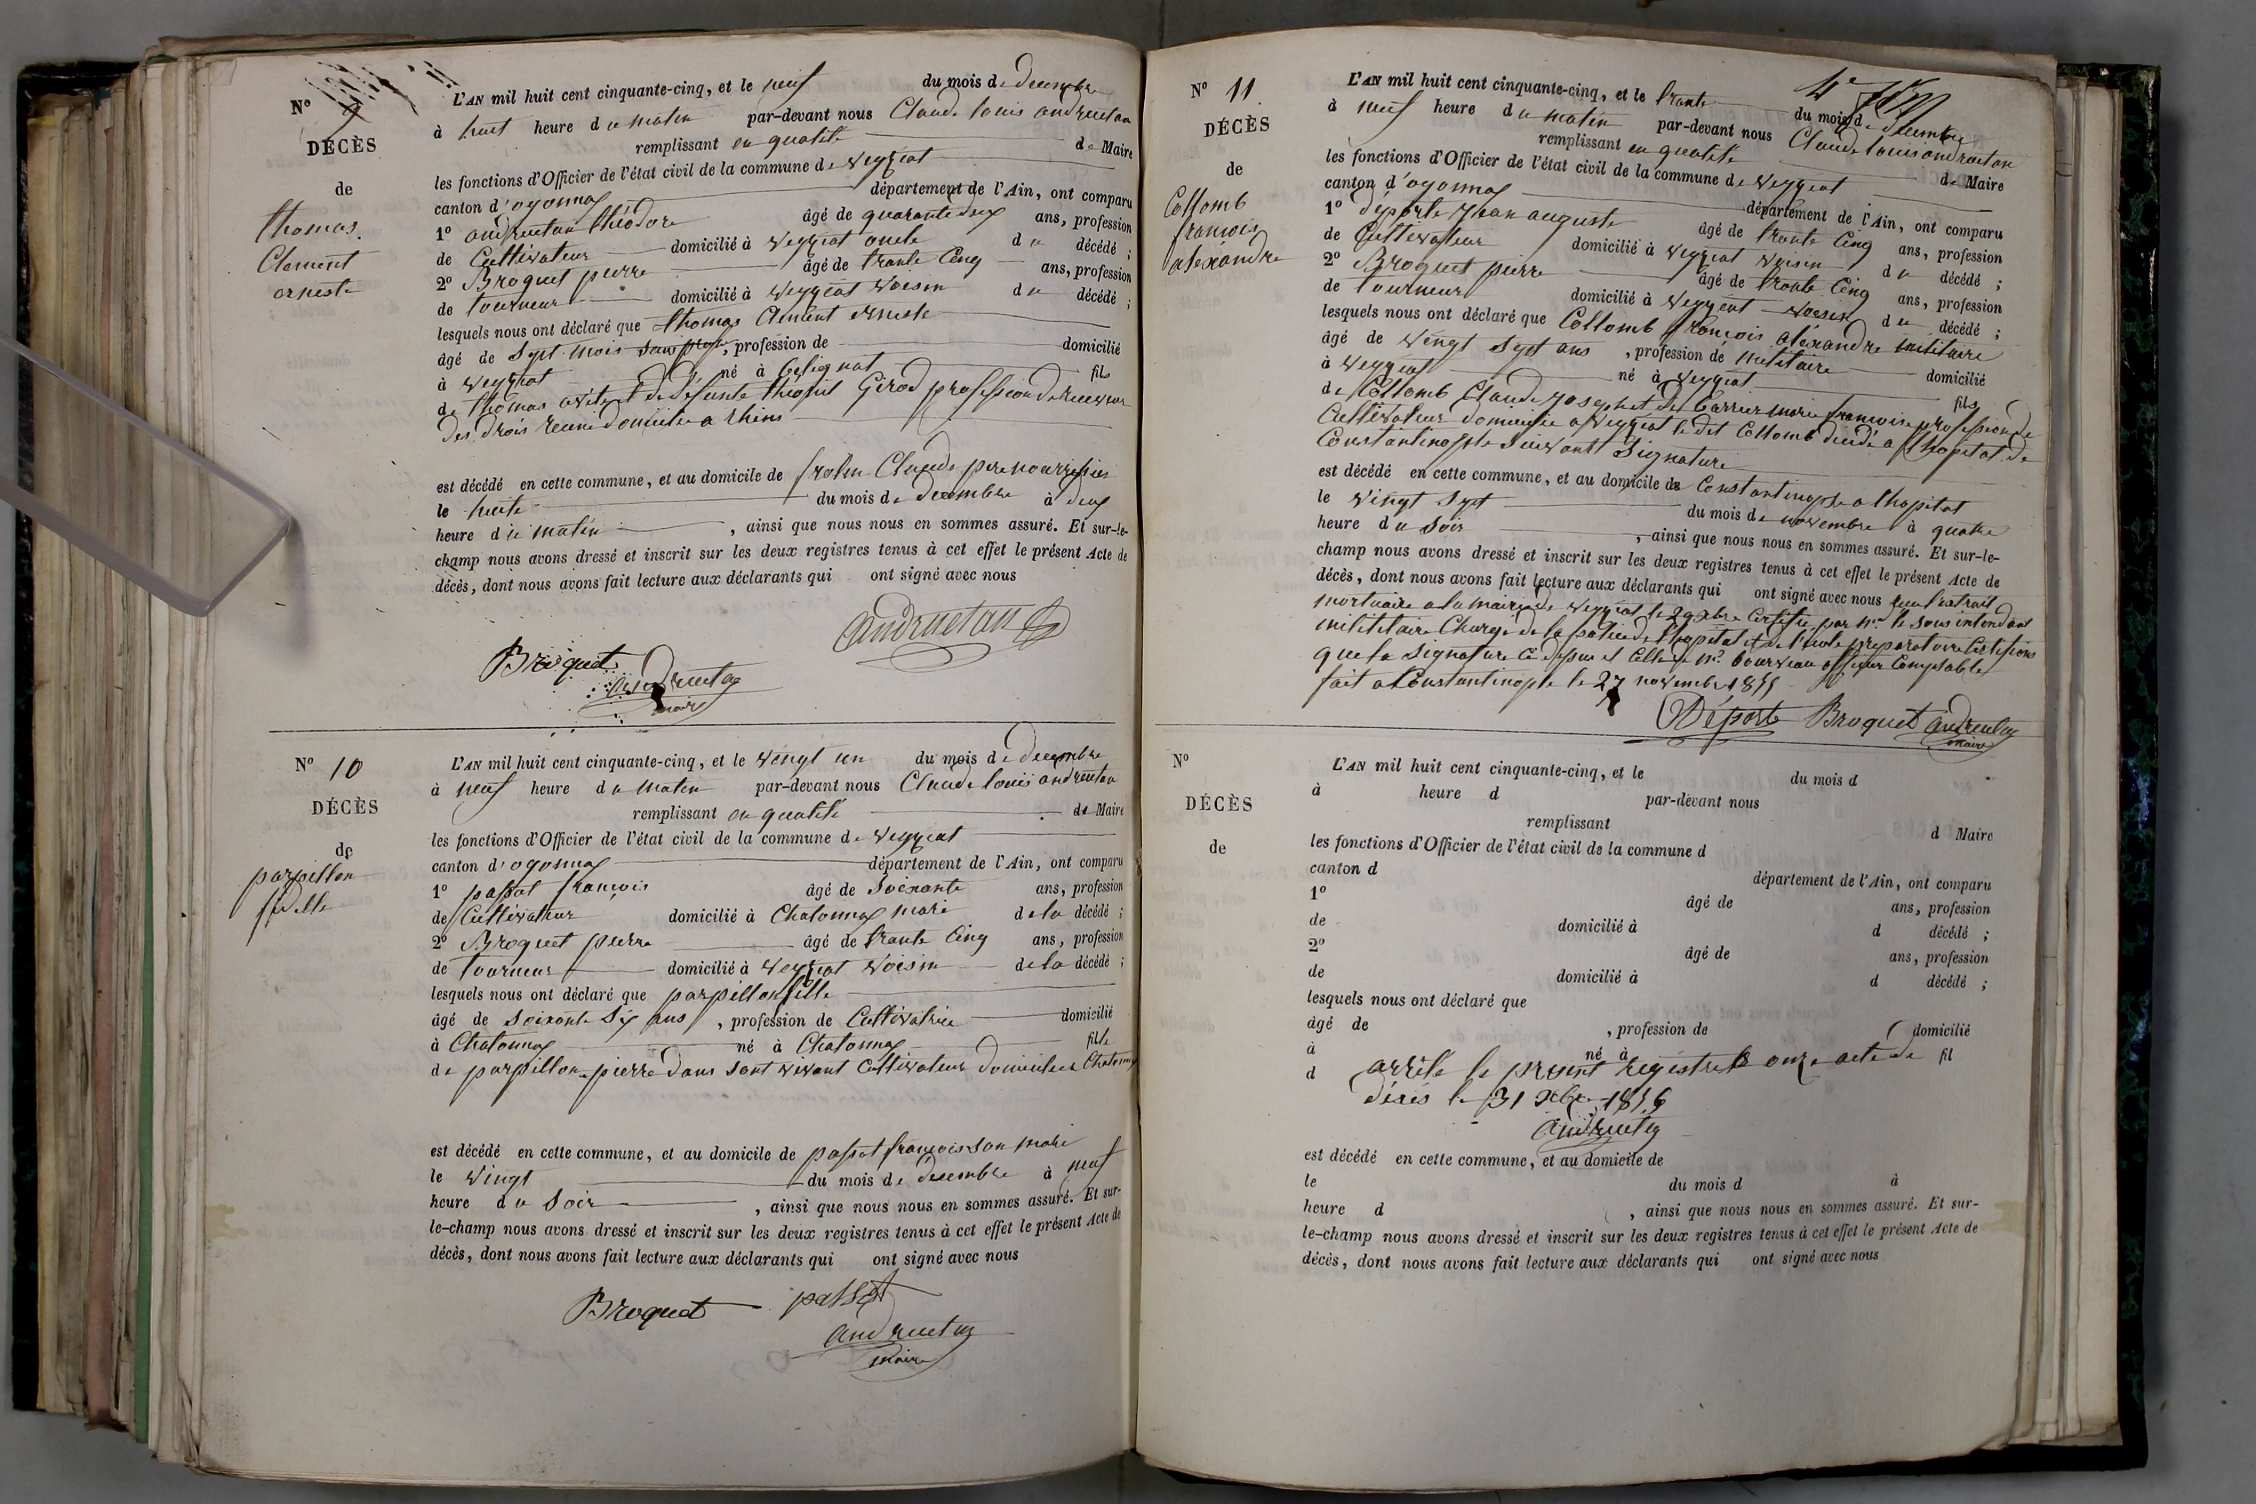 N° 9
DÉCÈS
de
thomas
Clement
erneste
L'AN mil huit cent cinquante-cinq, et le neuf du mois de decembre
à huit heure du matin par-devant nous Claude louis andruetan
remplissant en qualité de Maire
les fonctions d'Officier de l'état civil de la commune de veyziat
canton d'oyonnax département de l'Ain, ont comparu
1° andruetan théodore âgé de quarante deux ans, profession
de Cultivateur domicilié à veyziat oncle du décédé ;
2° Broquet pierre âgé de trante Cinq ans, profession
de tourneur domicilié à veyziat voisin du décédé ;
lesquels nous ont déclaré que thomas Clement erneste
âgé de sept mois sans prof, profession de domicilié
à veyziat né à bélignat fils
de thomas et de défunte Girod profession de receveur
des drois reuni domicilié a
est décédé en cette commune, et au domicile de Claude pere nourissier
le huite du mois de decembre à deux
heure du matin, ainsi que nous nous en sommes assuré. Et sur-le-
champ nous avons dressé et inscrit sur les deux registres tenus à cet effet le présent Acte de
décès, dont nous avons fait lecture aux déclarants qui ont signé avec nous
andruetan
Broquet
andruetan
maire
N° 10
DÉCÈS
de
parpillon
L'AN mil huit cent cinquante-cinq, et le vingt un du mois de decembre
à neuf heure du matin par-devant nous Claude louis andruetan
remplissant en qualité de Maire
les fonctions d'Officier de l'état civil de la commune de veyziat
canton d'oyonnax département de l'Ain, ont comparu
1° passot françois âgé de soixante ans, profession
de Cultivateur domicilié à Chatonnax mari de la décédé ;
2° Broquet pierre âgé de trante Cinq ans, profession
de tourneur domicilié à veyziat voisin de la décédé ;
lesquels nous ont déclaré que parpillon
âgé de soixante six ans, profession de Cultivatrice domicilié
à Chatonnax né à Chatonnax fille
de parpillon pierre dans sont vivant Cultivateur domicilié a Chatonnax
est décédé en cette commune, et au domicile de passot françois son mari
le vingt du mois de desembre à neuf
heure du soir, ainsi que nous nous en sommes assuré. Et sur-
le-champ nous avons dressé et inscrit sur les deux registres tenus à cet effet le présent Acte de
décès, dont nous avons fait lecture aux déclarants qui ont signé avec nous
Broquet passot
andruetan
maire
N° 11
DÉCÈS
de
Collomb
francois
aléxandre
L'AN mil huit cent cinquante-cinq, et le trante du mois de decembre
à neuf heure du matin par-devant nous Claude louis andruetan
remplissant en qualité de Maire
les fonctions d'Officier de l'état civil de la commune de veyziat
canton d'oyonnax département de l'Ain, ont comparu
1° déporte jean auguste âgé de trante Cinq ans, profession
de Cultivateur domicilié à veyziat voisin du décédé ;
2° Broquet pierre âgé de trante Cinq ans, profession
de tourneur domicilié à veyziat voisin du décédé ;
lesquels nous ont déclaré que Collomb françois aléxandre militaire
âgé de vingt sept ans, profession de militaire domicilié
à veyziat né à veyziat fils
de Collomb Claude joseph et de Carrier marie francoise profession de
Cultivateur domicilié a veyziat le dit Collomb décédé a l'hopital de
Constantinople suivant signature
est décédé en cette commune, et au domicile de Constantinople a l'hopital
le vingt sept du mois de novembre à quatre
heure du soir, ainsi que nous nous en sommes assuré. Et sur-le-
champ nous avons dressé et inscrit sur les deux registres tenus à cet effet le présent Acte de
décès, dont nous avons fait lecture aux déclarants qui ont signé avec nous l'extrait
mortuaire a la mairie de veyziat le 29 xbre Certifie par mr le sous intendant
militaire Chargé de la police de l'hopital et de l'école préparatoire Certifions
que la signature Ci dessus et Celle de mr officier Comptable
fait a Constantinople le 27 novembre 1855
Déporte Broquet andruetan
maire
N°
DÉCÈS
de
L'AN mil huit cent cinquante-cinq, et le du mois d
à heure d par-devant nous
remplissant d Maire
les fonctions d'Officier de l'état civil de la commune d
canton d département de l'Ain, ont comparu
1° âgé de ans, profession
de domicilié à d décédé ;
2° âgé de ans, profession
de domicilié à d décédé ;
lesquels nous ont déclaré que
âgé de , profession de domicilié
à né à fil
d arrêté le présent registre à onze acte de
décés le 31 xbre 1856
andruetan
est décédé en cette commune, et au domicile de
le du mois d à
heure d , ainsi que nous nous en sommes assuré. Et sur-
le-champ nous avons dressé et inscrit sur les deux registres tenus à cet effet le présent Acte de
décès, dont nous avons fait lecture aux déclarants qui ont signé avec nous